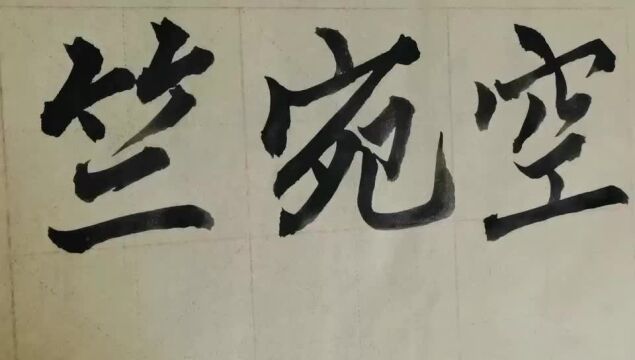 竺宛空